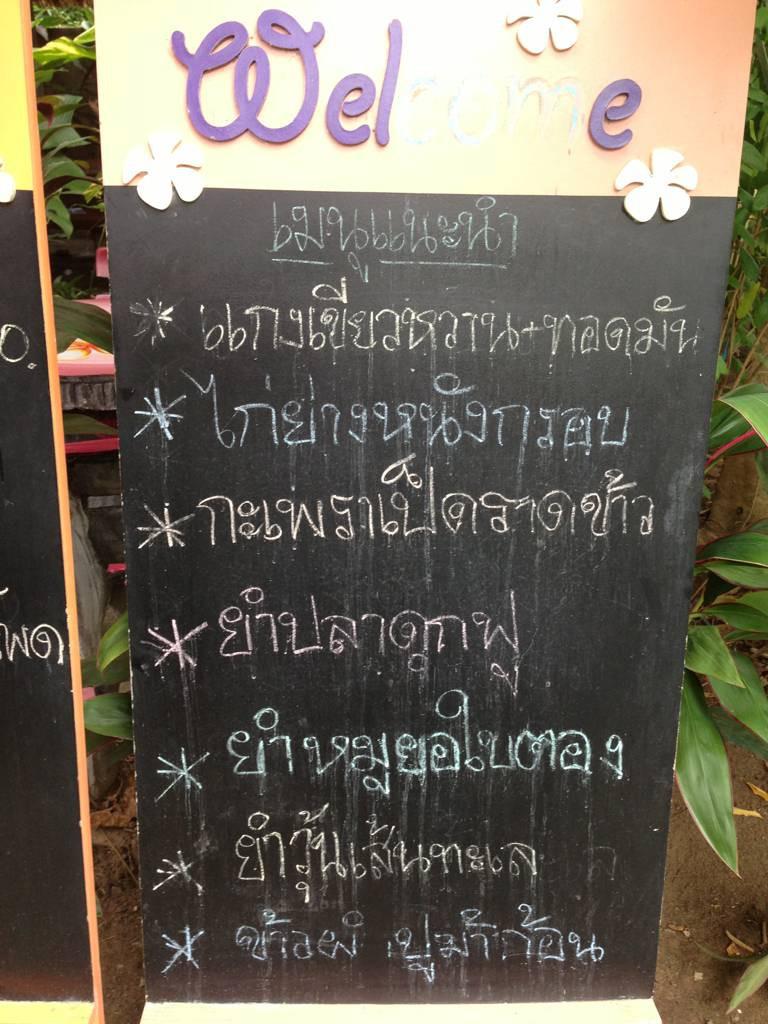 Welcome
เมนูแนะนำ
* แกงเขียวหวาน+ทอดมัน
* ไก่ย่างหนังกรอบ
* กะเพราเป็ดราดข้าว
* ยำปลาดุกฟู
* ยำหมูยอใบตอง
* ยำวุ้นเส้นทะเล
* ข้าวผั ปูม้าก้อน